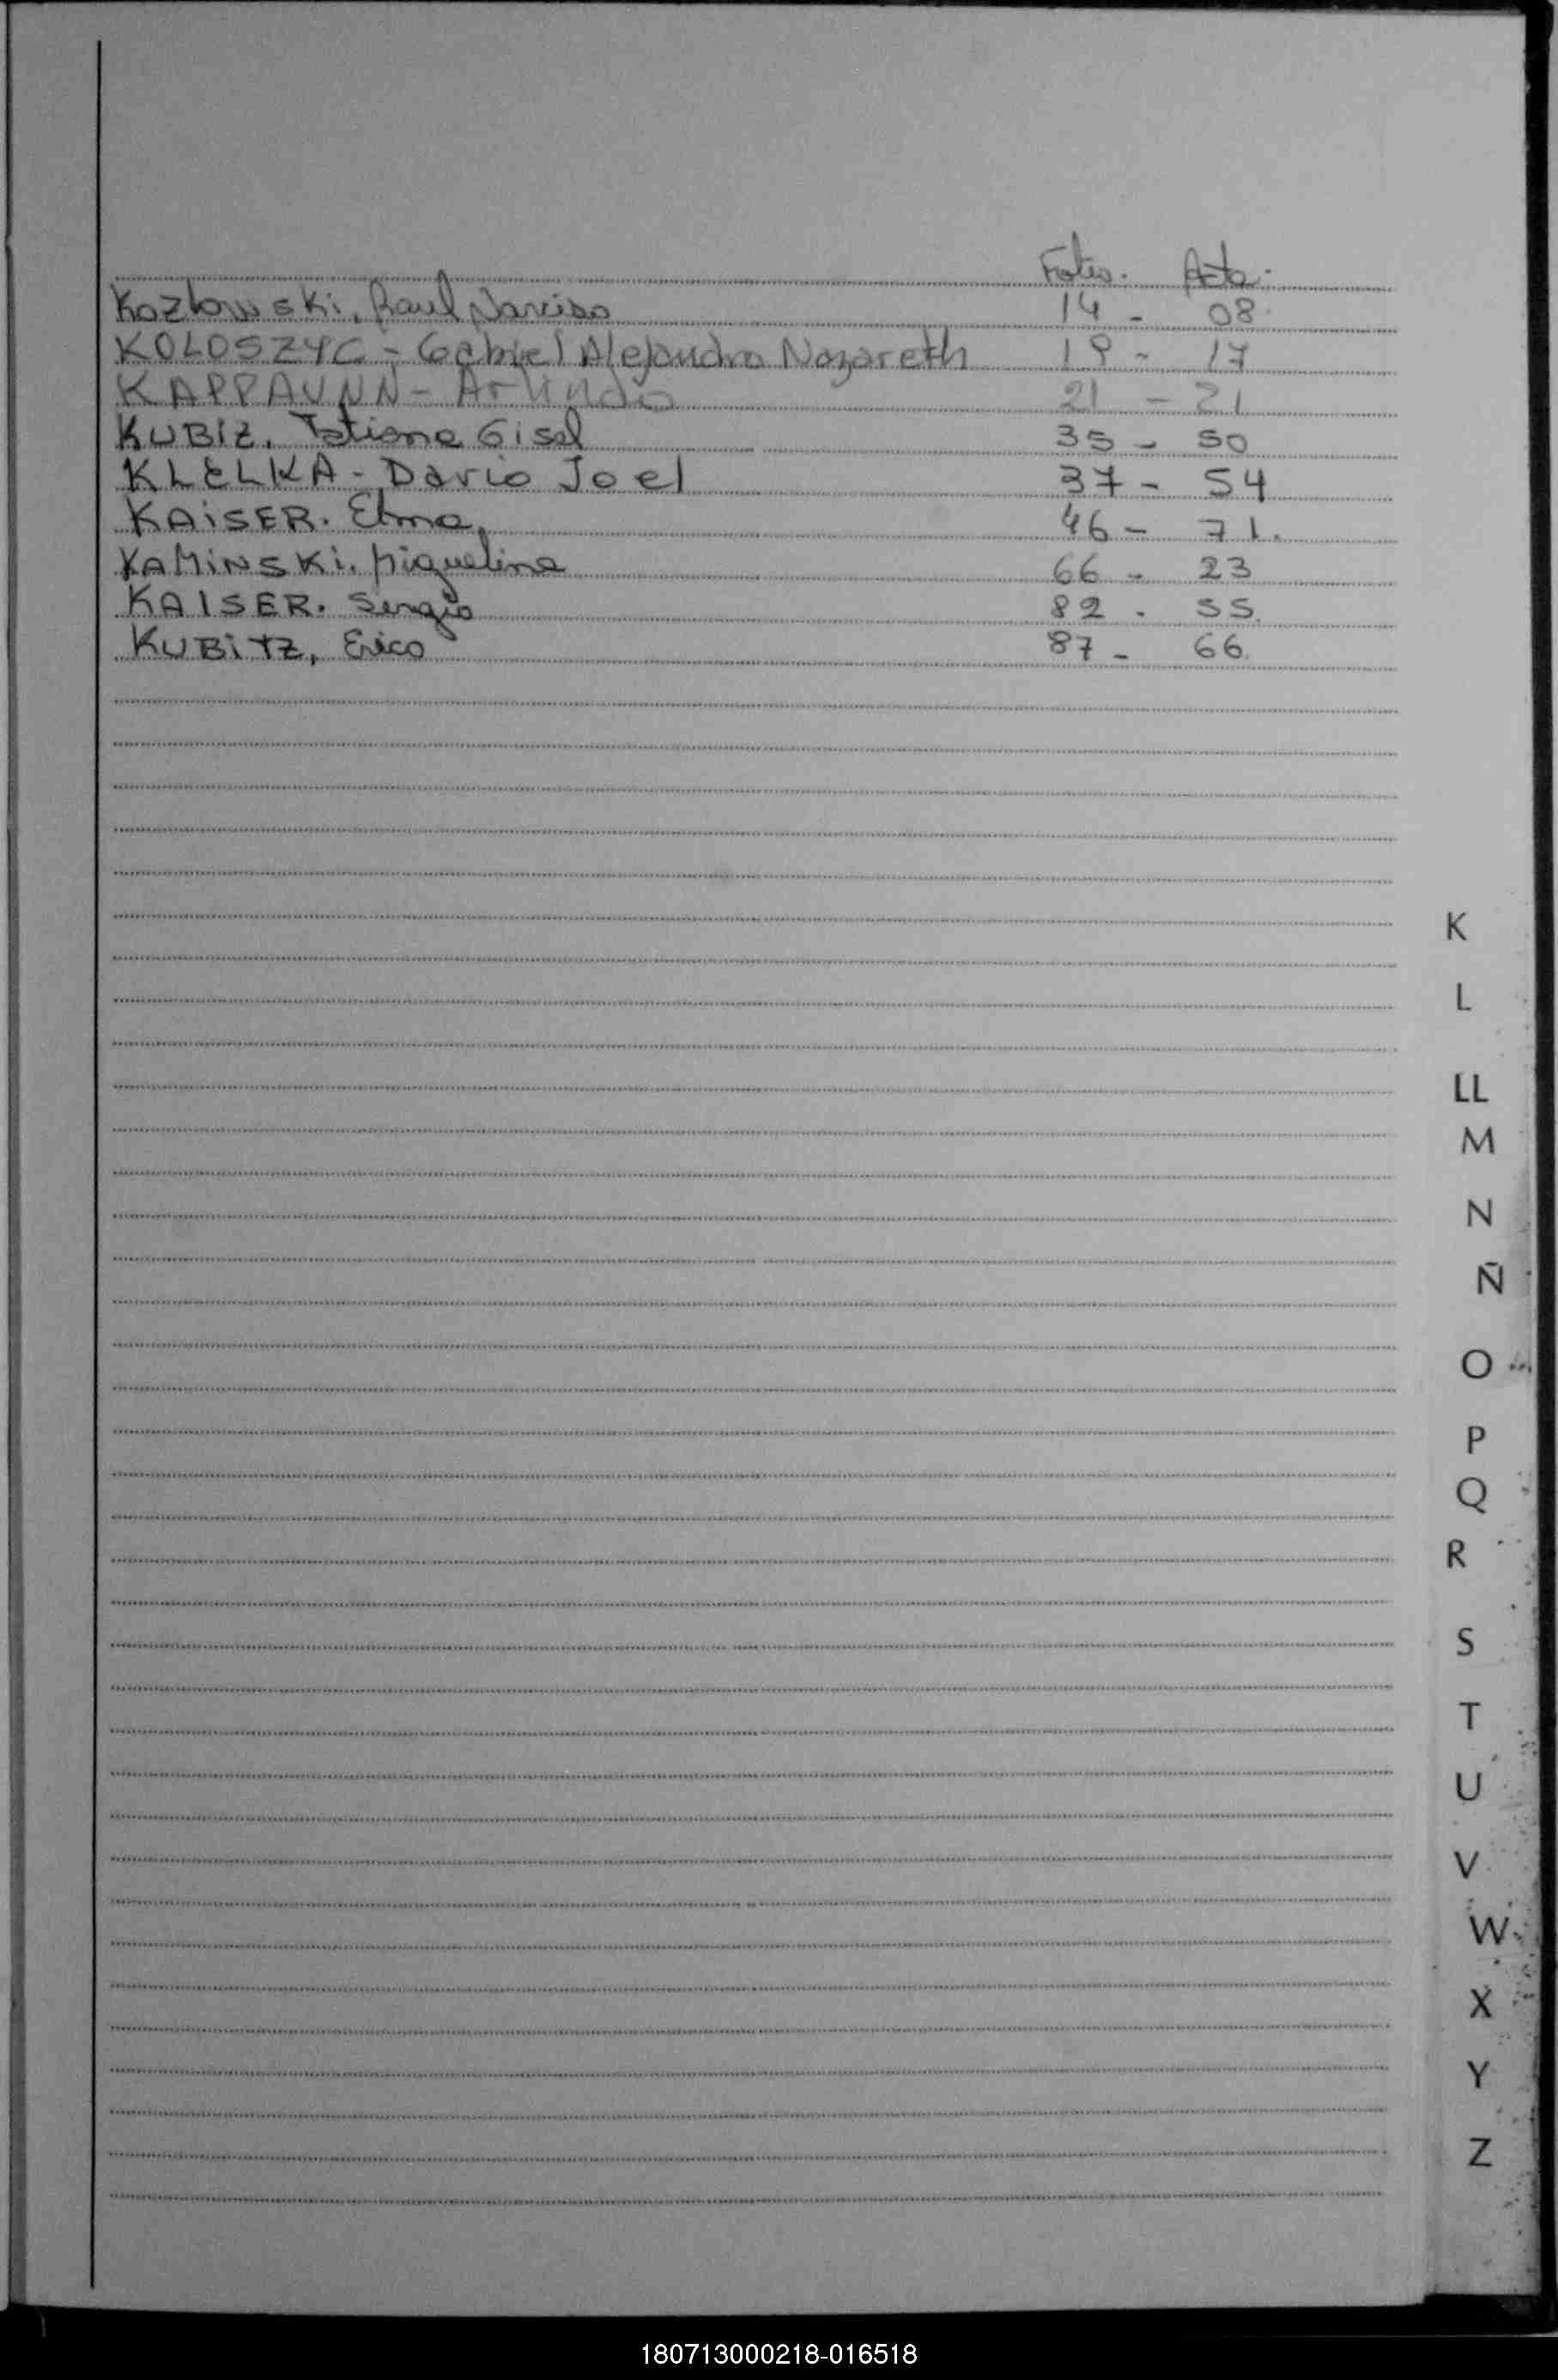 Folio. Acta.
Kozlowski, Raul Narciso 14 - 08.
KOLOSZYC - Gabriel Alejandro Nazareth 19 - 17
KAPPAUNN - Arlindo 21 - 21
KUBIZ. Tatiana Gisel 35 - 50
KLELKA - Dario Joel 37 - 54
KAiSER. Elma. 46 - 71.
KAMiNSKi. Miquelina 66 - 23
KAISER. Sergio 82 - 55.
KUBiTZ, Erico 87 - 66.
K
L
LL
M
N
Ñ
O
P
Q
R
S
T
U
V
W
X
Y
Z
180713000218-016518